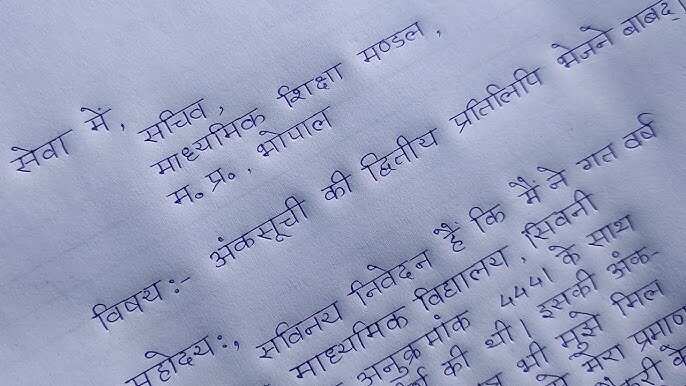 सेवा में, सचिव,
माध्यमिक शिक्षा मण्डल,
म.प्र., भोपाल
विषय:- अंकसूची की द्वितीय प्रतिलिपि भेजने बाबद।
महोदय:, सविनय निवेदन है कि मैं ने गत वर्ष
माध्यमिक विद्यालय, सिवनी
अनुक्रमांक 4441 के साथ
की थी। इसकी अंक-
भी मुझे मिल
मेरा प्रमाण